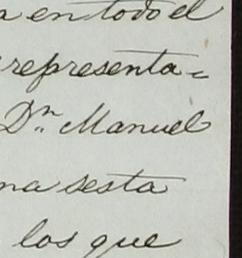 en todo el
representa=
Dn. Manuel
na sesta
los que